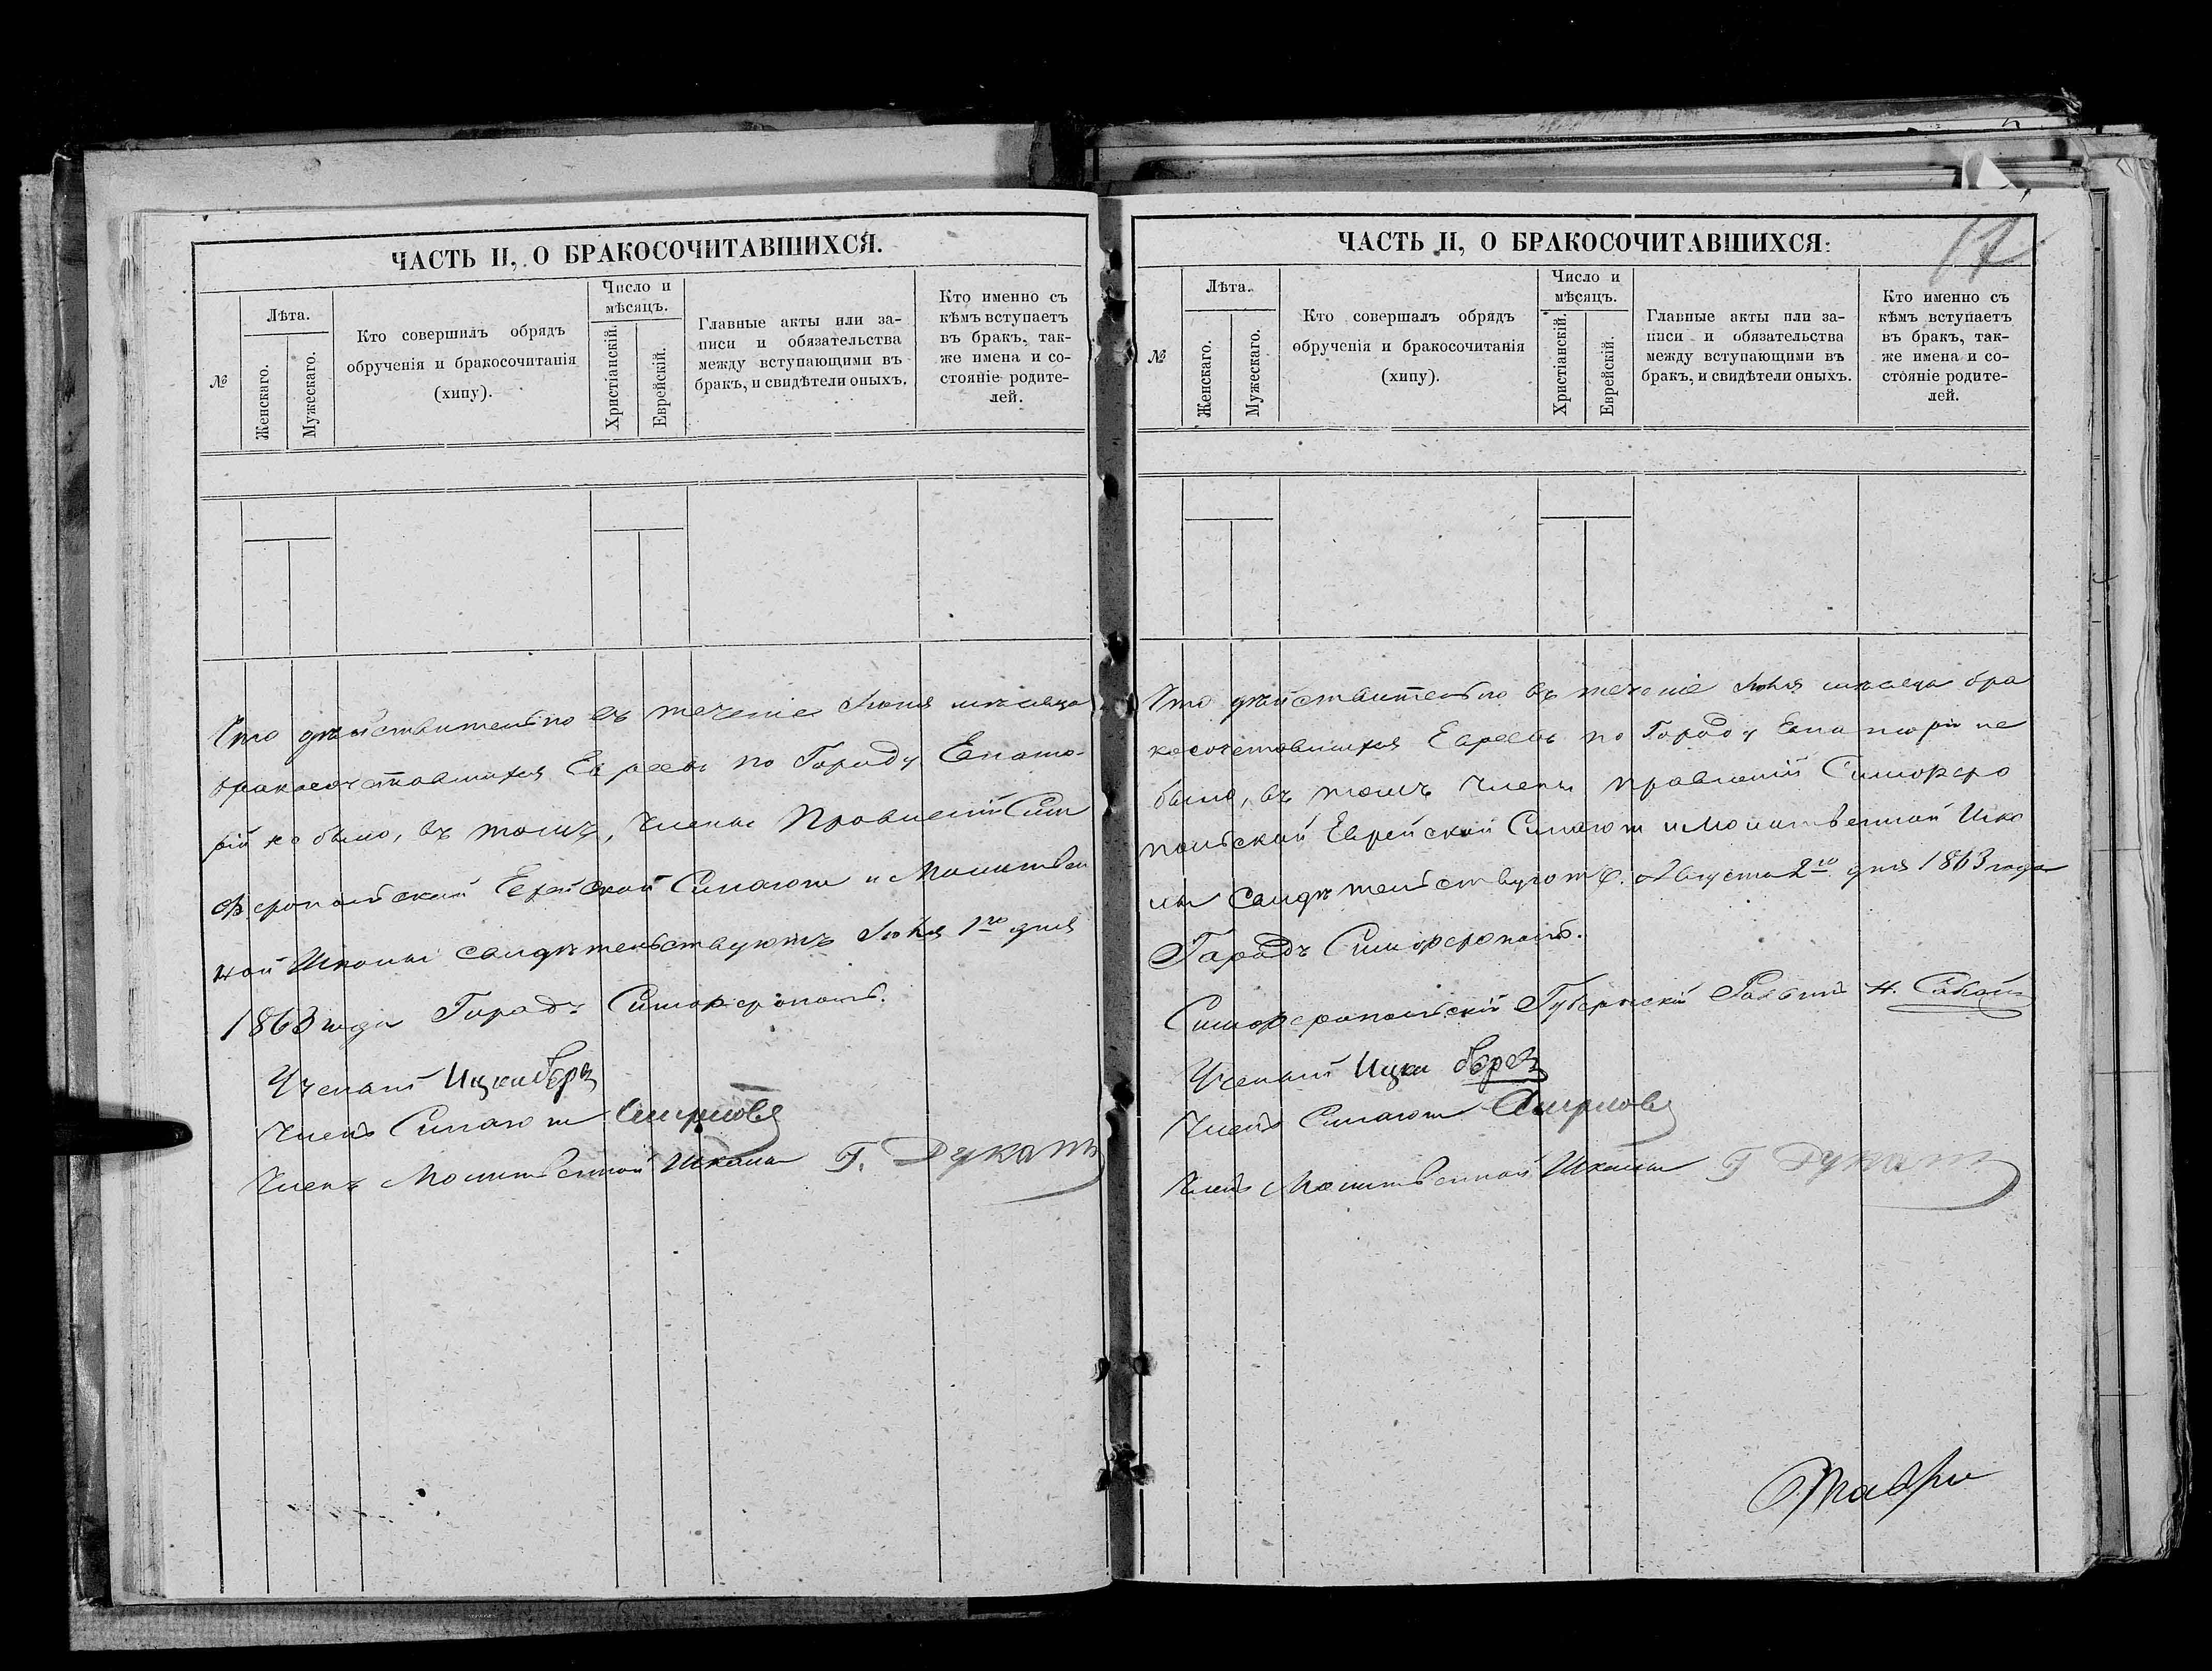 ЧАСТЬ II, О БРАКОСОЧИТАВШИХСЯ.
№
Лѣта.
Женскаго.
Мужескаго.
Кто совершилъ обрядъ
обрученія и бракосочитанія
(хипу).
Число и
мѣсяцъ.
Христіанскій.
Еврейскій.
Главные акты или за-
писи и обязательства
между вступающими въ
бракъ, и свидѣтели оныхъ.
Кто именно съ
кѣмъ вступаетъ
въ бракъ, так-
же имена и со-
стояніе родите-
лей.
Что дѣйствительно въ теченіе Іюня мѣсяца
бракосочетавшихся Евреевъ по Городу Евпато-
ріи не было, въ томъ, Члены Правленій Сим
феропольской Еврейской Синагоги и Молитвен
ной Школы свидѣтельствуютъ Іюля 1го дня
1863 года Городъ Симферополь.
Ученый Ицка
Членъ Синагоги Смирновъ
Членъ Молитвенной Школы Г. Дукатъ
ЧАСТЬ II, О БРАКОСОЧИТАВШИХСЯ:
17
№
Лѣта.
Женскаго.
Мужескаго.
Кто совершалъ обрядъ
обрученія и бракосочитанія
(хипу).
Число и
мѣсяцъ.
Христіанскій.
Еврейскій.
Главные акты или за-
писи и обязательства
между вступающими въ
бракъ, и свидѣтели оныхъ.
Кто именно съ
кѣмъ вступаетъ
въ бракъ, так-
же имена и со-
стояніе родите-
лей.
Что дѣйствительно въ теченіе Іюля мѣсяца бра
косочетавшихся Евреевъ по Городу Евпаторіи не
было, въ томъ Члены Правленій Симферо
польской Еврейской Синагоги и Молитвенной Шко
лы Свидѣтельствуютъ. Августа 2го дня 1863 года
Городъ Симферополь.
Симферопольскій Губернскій Раввинъ
Ученый Ицка
Членъ Синагоги Смирновъ
Членъ Молитвенной Школы Г Дукатъ